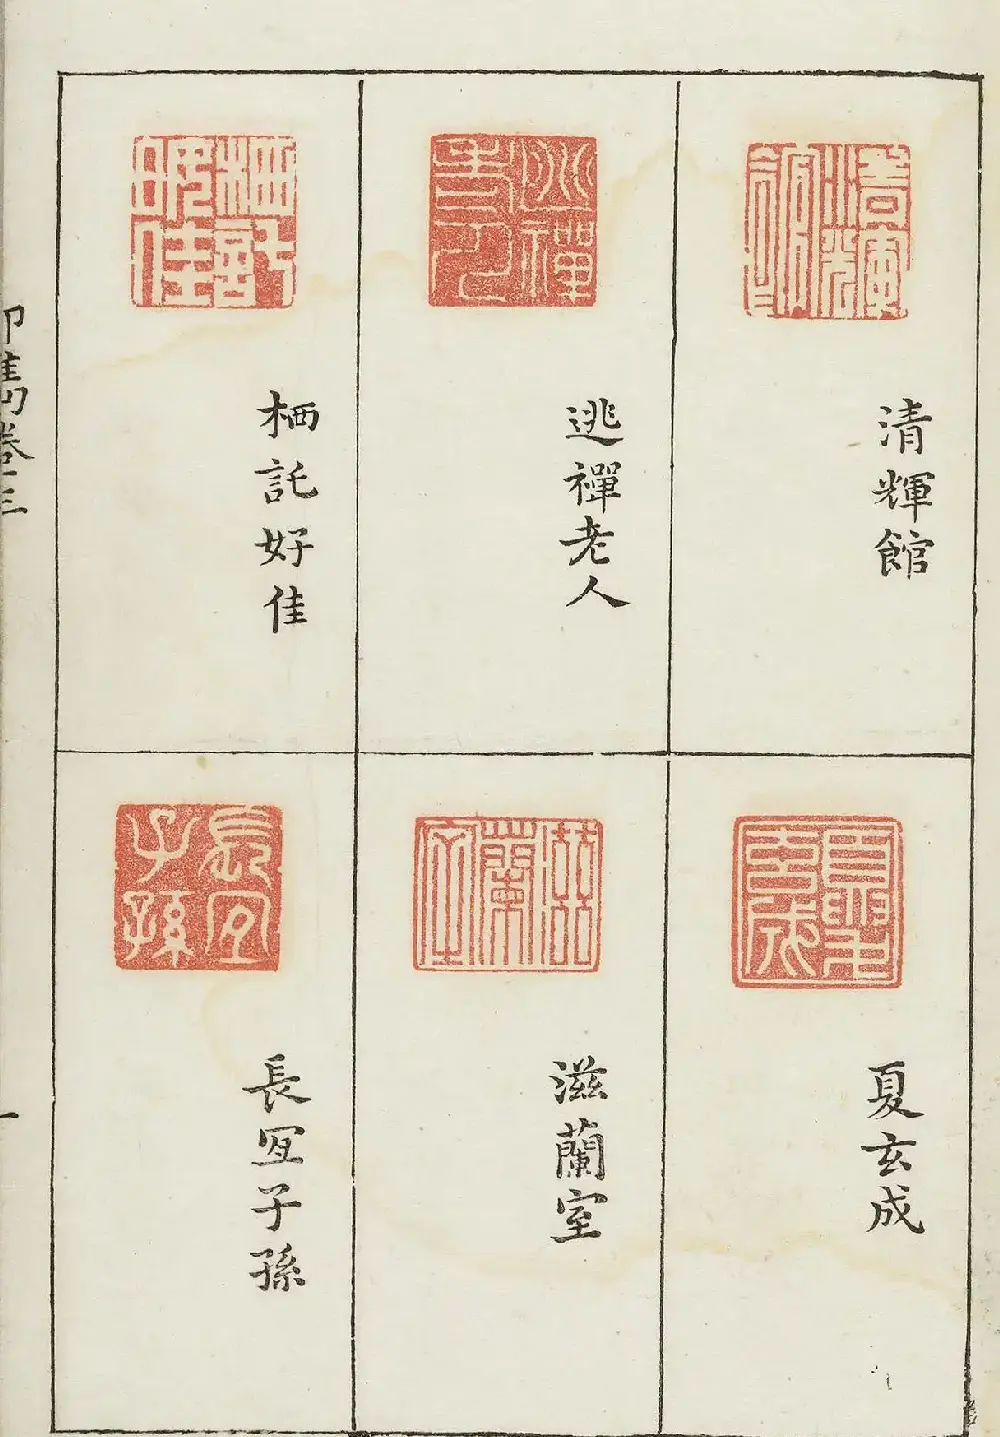 清輝館
逃禪老人
栖託好佳
夏玄成
滋蘭室
長冝子孫
印雋卷三
一